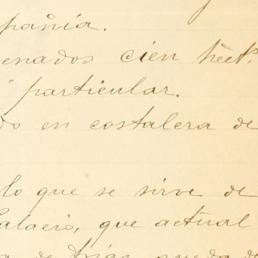 pañia.
enados cien hect.s
particular.
do en costalera de
lo que se sirve de
Palacio, que actual